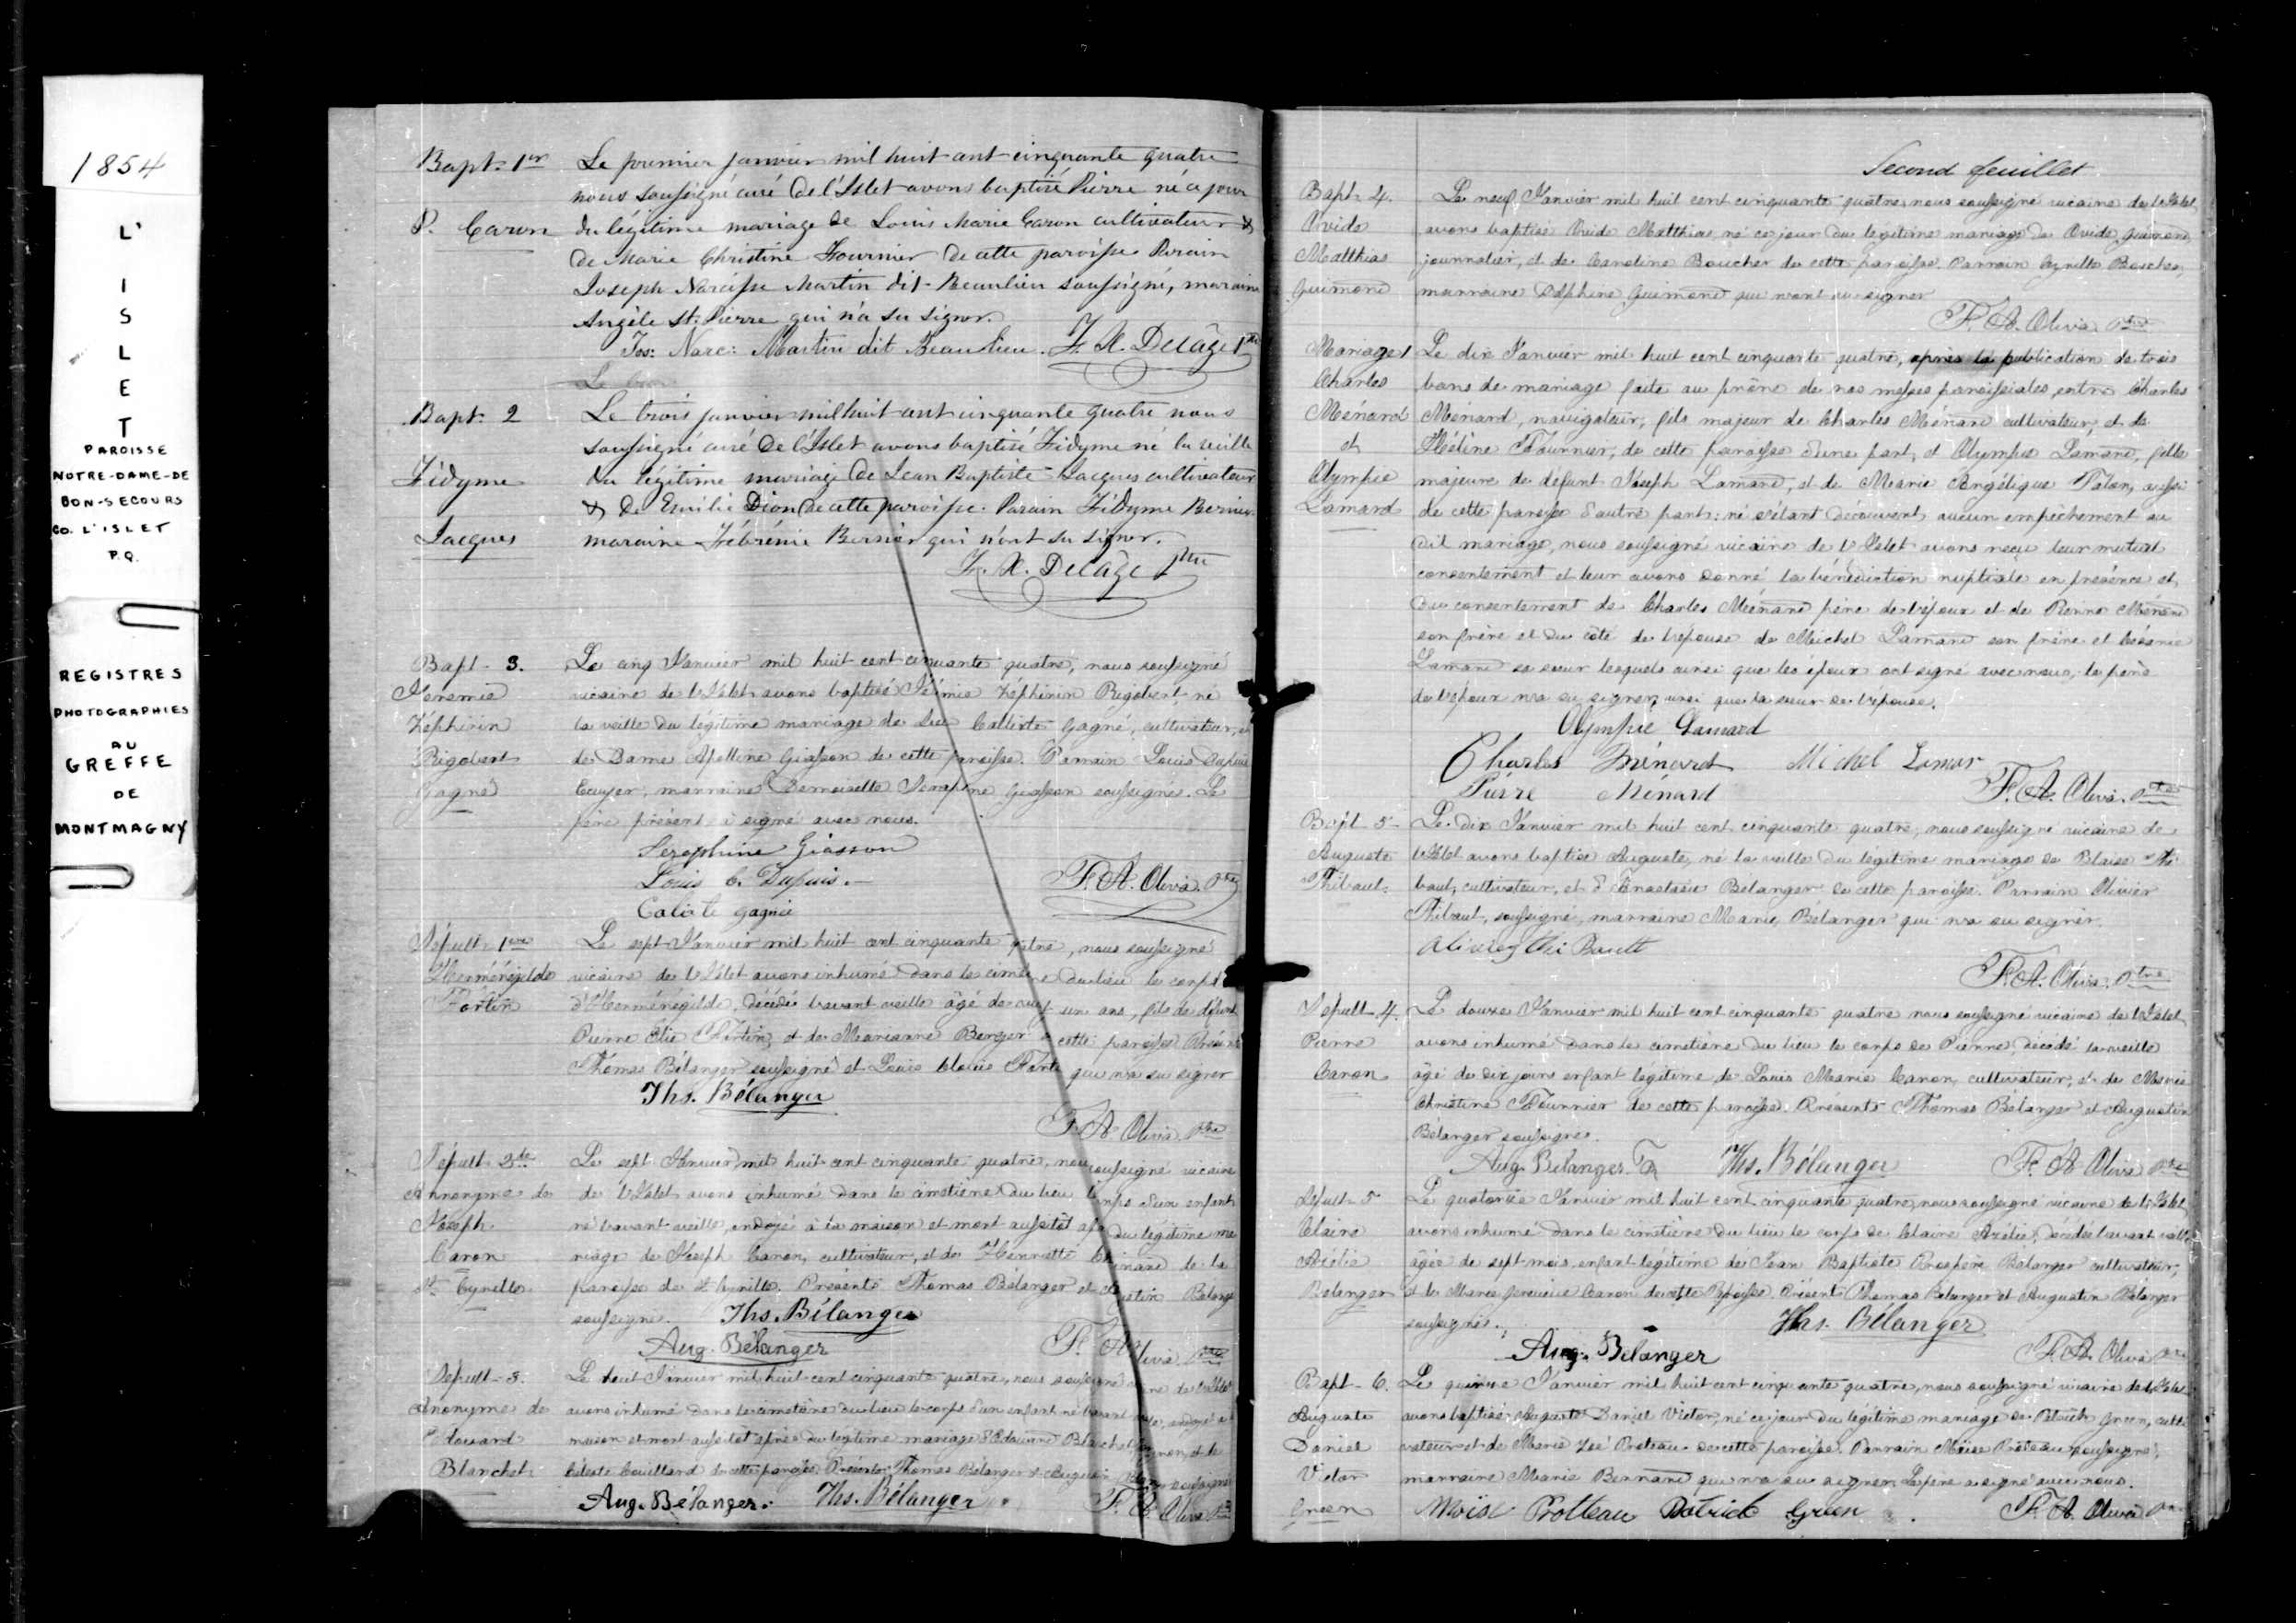 1854
L'
I
S
L
E
T
PAROISSE
NOTRE-DAME-DE
BON-SECOURS
CO. L'ISLET
P.Q.
REGISTRES
PHOTOGRAPHIES
AU
GREFFE
DE
MONTMAGNY
Bapt. 1er
P. Caron
Le premier janvier mil huit cent cinquante quatre
nous soussigné curé de l'Islet avons baptisé Pierre né ce jour
du légitime mariage de Louis Marie Caron cultivateur &
de Marie Christine Fournier de cette paroisse Parain
Joseph Narcisse Martin dit Beaulieu soussigné, maraine
Angèle St. Pierre qui n'a su signer.
Jos: Narc: Martin dit Beaulieu. F. X. Delâge Ptre
Bapt. 2
Fidyme
Jacques
Le trois janvier mil huit cent cinquante quatre nous
soussigné curé de l'Islet avons baptisé Fidyme né la veille
du légitime mariage de Jean Baptiste Jacques cultivateur
& de Emilie Dion de cette paroisse. Parain Fidyme Bernier
maraine Fébrénie Bernier qui n'ont su signer.
F. X. Delâge Ptre
Bapt - 3.
Jeremie
Zéphirin
Rigobert
Gagné
Le cinq Janvier mil huit cent cinquante quatre, nous soussigné
vicaire de l'Islet avons baptisé Jérémie Zéphirin Rigobert, né
la veille du légitime mariage de Calixte Gagné, cultivateur, et
de Dame Apolline Giasson de cette paroisse. Parrain Louis Dupuis
Ecuyer, marraine Demoiselle Séraphine Giasson soussignés. Le
père présent a signé avec nous.
Seraphine Giasson
Louis C. Dupuis.
F. A. Oliva. Ptre
Calixte Gagnié
Sépult. 1ere
Herménégilde
Fortin
Le sept Janvier mil huit cent cinquante quatre, nous soussigné
vicaire de l'Islet avons inhumé dans le cimetière du lieu le corps
d'Herménégilde, décédé l'avant veille âgé de un ans, fils de défunt
Pierre Elie Fortin, et de Marianne Berger cette paroisse Présents
Thomas Bélanger soussigné et Louis qui n'a su signer
Ths. Bélanger
F. A. Oliva Ptre
Sépult. 2de
Annonyme de
Joseph
Caron
St Cyrille
Le sept Janvier mil huit cent cinquante quatre, nous soussigné vicaire
de l'Islet avons inhumé dans le cimetière du lieu le corps d'un enfant
né l'avant veille, ondoyé à la maison et mort aussitôt après du légitime ma
riage de Joseph Caron, cultivateur, et de Henriette de la
paroisse de St Cyrille. Présents Thomas Bélanger et Augustin Bélanger
soussignés. Ths. Bélanger
Aug. Bélanger
F. A. Oliva Ptre
Sépult - 3.
Anonyme de
Edouard
Blanchet
Le huit Janvier mil huit cent cinquante quatre, nous soussigné vicaire de l'Islet
avons inhumé dans le cimetière du lieu le corps d'un enfant né l'avant veille, ondoyé à la
maison et mort aussitôt après du légitime mariage d'Edouard Blanchet, et de
Céleste Couillard de cette paroisse. Présents Thomas Bélanger et Augustin Bélanger soussignés
Aug. Bélanger. Ths. Bélanger F. A. Oliva Ptre
Second feuillet
Bapt. 4.
Ovide
Matthias
Guimond
Le neuf Janvier mil huit cent cinquante quatre nous soussigné vicaire de l'Islet
avons baptisé Ovide Matthias, né ce jour du legitime mariage de Ovide Guimond,
journalier, et de Caroline Boucher de cette paroisse. Parrain Cyrille Boucher,
marraine Delphine Guimond qui n'ont su signer
F. A. Oliva Ptre
Mariage 1
Charles
Ménard
et
Olympie
Lamard
Le dix Janvier mil huit cent cinquante quatre, après la publication de trois
bans de mariage faite au prône de nos messes paroissiales entre Charles
Ménard, navigateur, fils majeur de Charles Ménard cultivateur, et de
Hélène Fournier, de cette paroisse d'une part, et Olympie Lamard, fille
majeure de défunt Joseph Lamard, et de Marie Angélique Talon, aussi
de cette paroisse d'autre part: ne s'étant découvert aucun empêchement au
dit mariage, nous soussigné vicaire de l'Islet avons reçu leur mutuel
consentement et leur avons donné la bénédiction nuptiale en présence et
du consentement de Charles Ménard père de l'époux et de Pierre Ménard
son frère et du côté de l'épouse de Michel Lamard son frère et Césarie
Lamard sa soeur lesquels ainsi que les époux ont signé avec nous, le père
de l'époux n'a su signer, ainsi que la soeur de l'épouse.
Olympie Lamard
Charles Ménard Michel Lamar
Pierre Ménard F. A. Oliva. Ptre
Bapt. 5
Auguste
Thibault
Le dix Janvier mil huit cent cinquante quatre, nous soussigné vicaire de
l'Islet avons baptisé Auguste, né la veille du légitime mariage de Blaise Thi
baut, cultivateur, et d'Anastasie Belanger de cette paroisse. Parrain Olivier
Thibaut, soussigné, marraine Marie Bélanger qui n'a su signer.
Olivier Thi Bault
F. A. Oliva. Ptre
Sépult. 4.
Pierre
Caron
Le douze Janvier mil huit cent cinquante quatre nous soussigné vicaire de l'Islet,
avons inhumé dans le cimetière du lieu le corps de Pierre, décédé la veille
âgé de dix jours enfant legitime de Louis Marie Caron, cultivateur, et de Marie
Christine Fournier de cette paroisse. Présents Thomas Bélanger et Augustin
Bélanger soussignés.
Aug. Bélanger. Ths. Bélanger F. A. Oliva Ptre
Sépult. 5
Claire
Azélie
Belanger
Le quatorze Janvier mil huit cent cinquante quatre, nous soussigné vicaire de l'Islet
avons inhumé dans le cimetière du lieu le corps de Claire Azélie, décédée l'avant veille
âgée de sept mois, enfant légitime de Jean Baptiste Prospère Bélanger cultivateur,
et de Marie Caron de cette Paroisse. Présents Thomas Bélanger et Augustin Bélanger
soussignés. Ths. Bélanger
Aug. Bélanger F. A. Oliva Ptre
Bapt - 6.
Auguste
Daniel
Victor
Green
Le quinze Janvier mil huit cent cinquante quatre, nous soussigné vicaire de l'Islet
avons baptisé Auguste Daniel Victor, né ce jour du légitime mariage de Patrick Green, culti
vateur et de Marie Zoé Proteau de cette paroisse. Parrain Moïse Proteau soussigné,
marraine Marie Bernard qui n'a su signer. Le père a signé avec nous.
Moïse Protteau Patrick Green F. A. Oliva Ptre